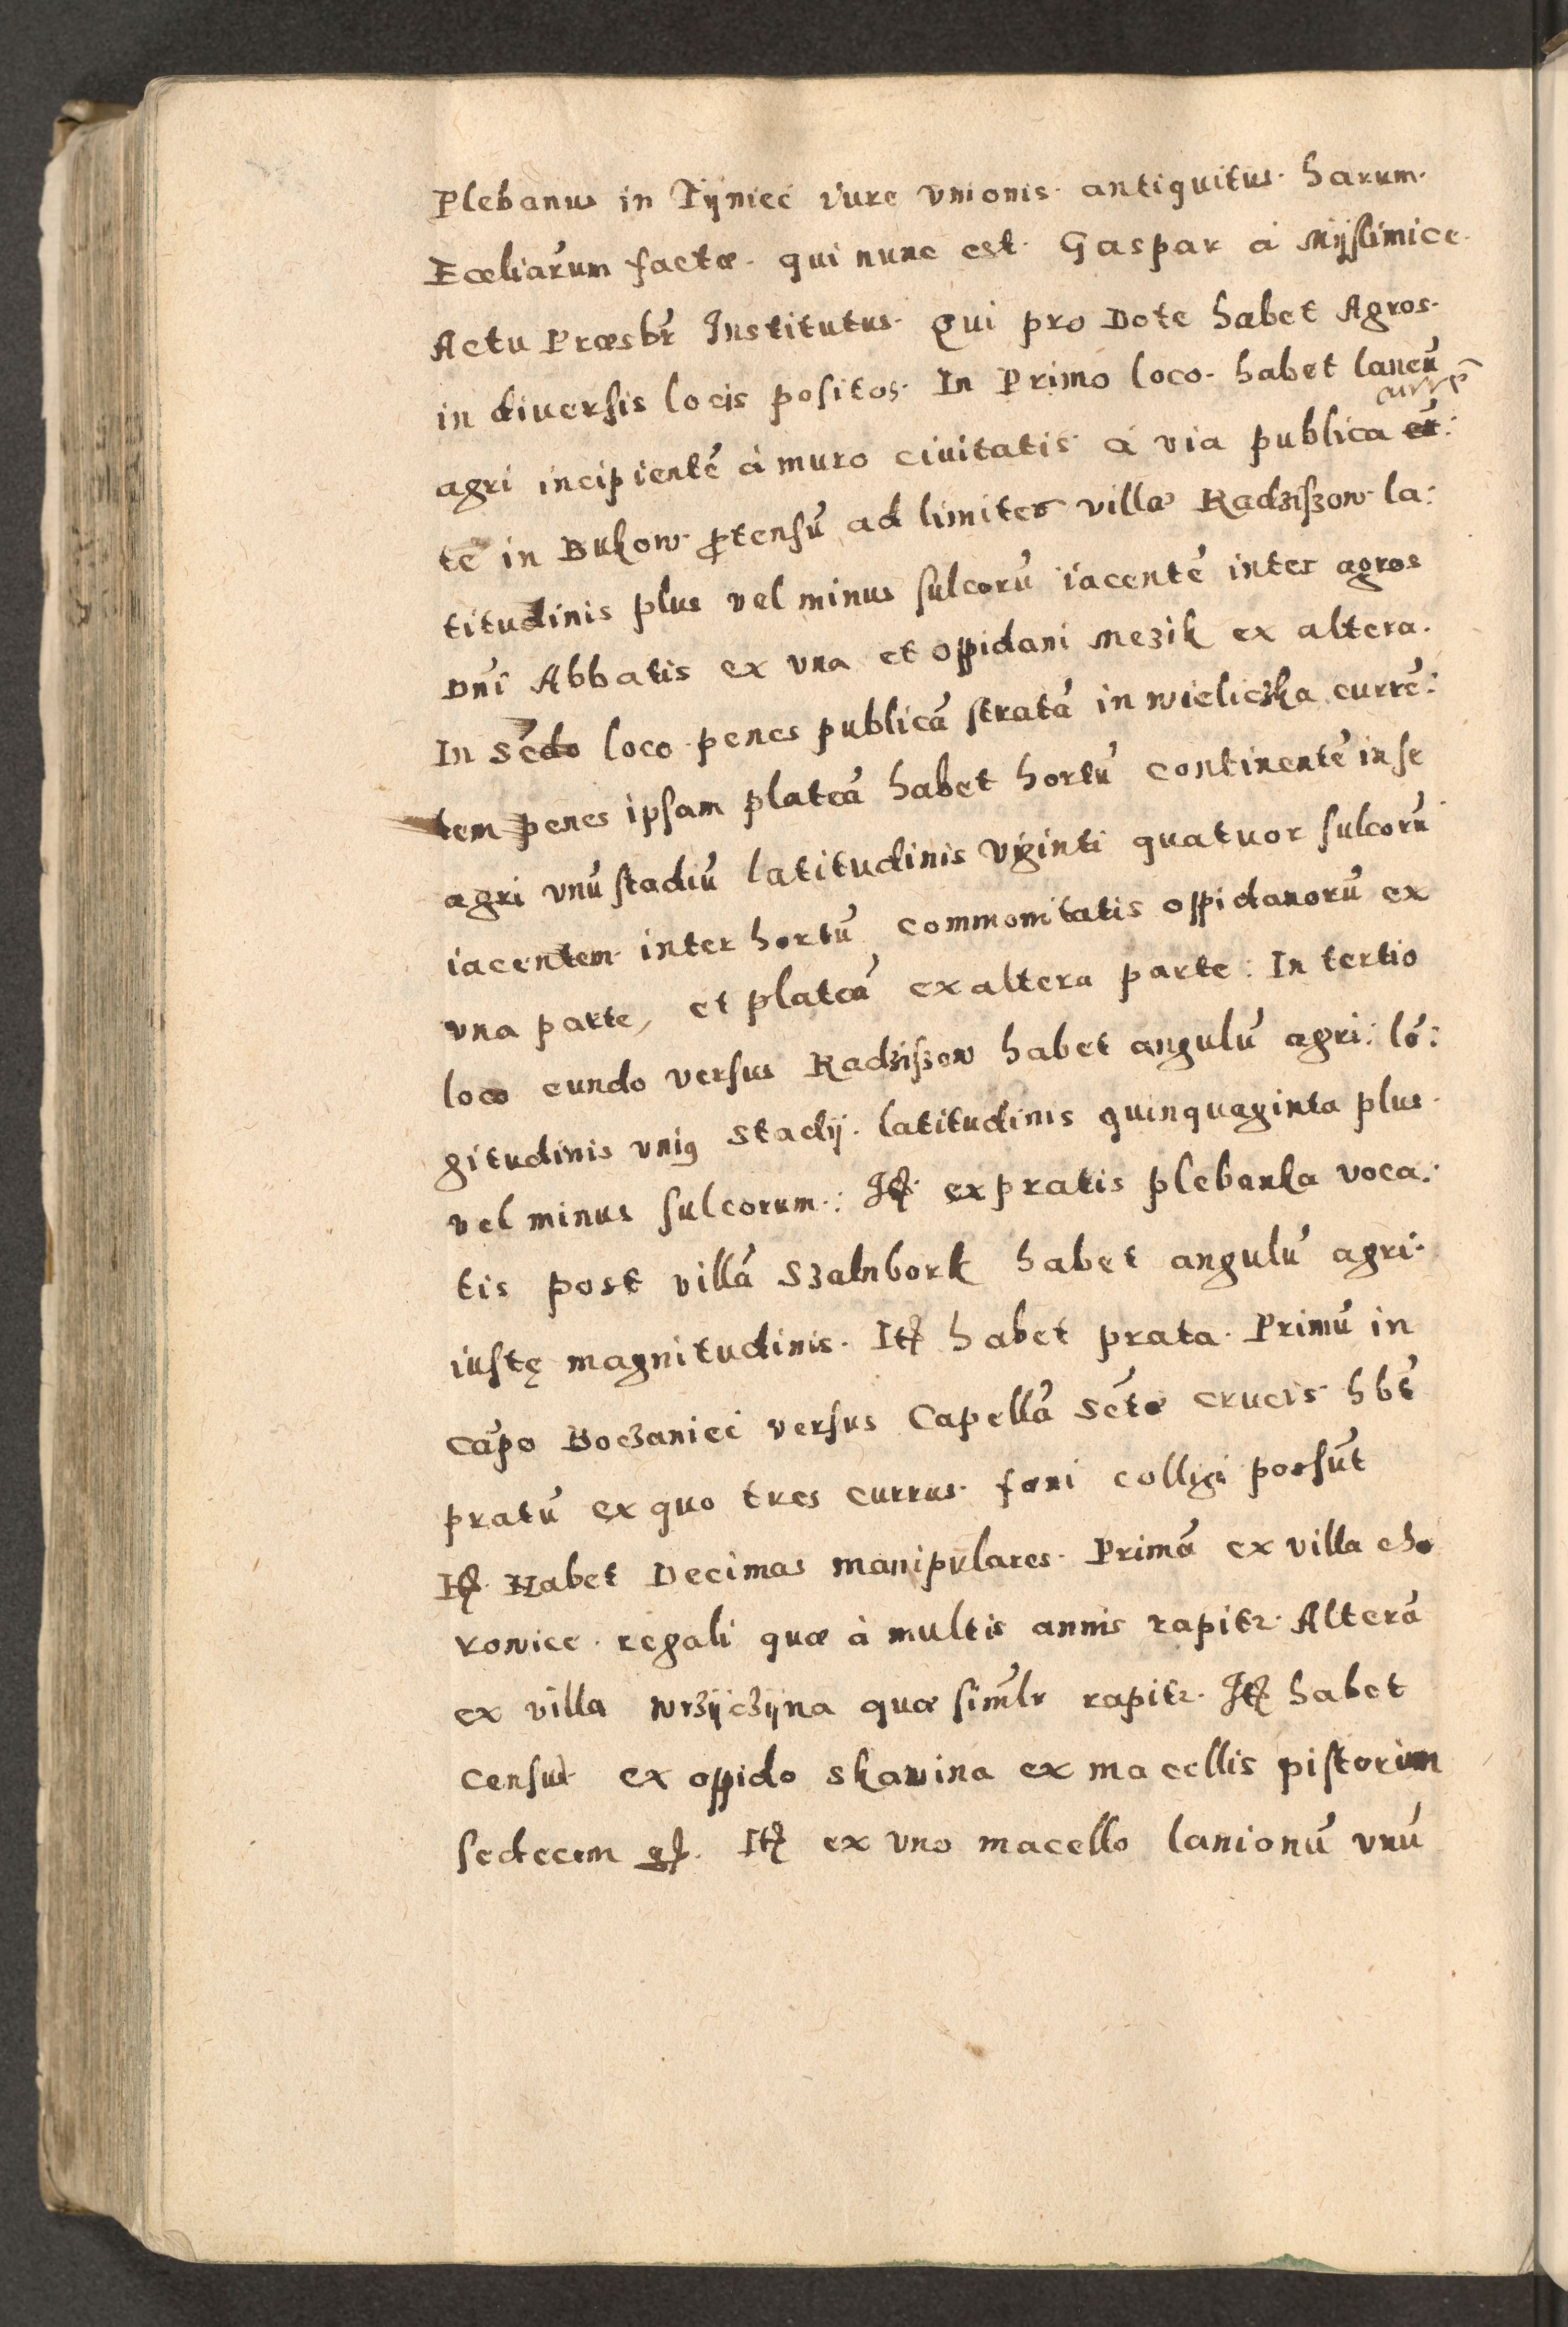 Plebanus in Tÿniec iure vnionis antiquitus harum
Eccliarum factæ. qui nunc est Gaspar á Mÿslimice
Actu Præsbr Institutus. Qui pro Dote habet Agros
in diuersis locis positos. In Primo loco habet laneū
curre͂
agri incipientē á muro ciuitatis á via publica
tē in Bukow ꝓtensū ad limites villæ Radziszow la:
titudinis plus vel minus sulcorū iacentē inter agros
Dnī Abbatis ex vna et oppidani Mezik ex altera.
In Sēdo loco penes publicā stratā in Wieliczka currē:
tem penes ipsam plateā habet hortū continentē in se
agri vnū stadiū latitudinis viginti quatuor sulcorū
iacentem inter hortū commonitatis oppidanorū ex
vna parte, et plateā ex altera parte: In tertio
loco eundo versus Radziszow habet angulū agri: lō:
gitudinis vniꝰ stadij. latitudinis quinquaginta plus
vel minus sulcorum: Itē ex pratis plebanka voca:
tis post villā Szalnbork habet angulū agri.
iustę magnitudinis. Itē habet prata. Primū in
cāpo Boczaniec versus Capellā Sctæ Crucis hbt
pratū ex quo tres currus fœni colligi possūt
Itē Habet Decimas manipulares. Primā ex villa cho
rowice regali quæ à multis annis rapitr. Alterā
ex villa Wrzÿczÿna quæ simlr rapitr. Itē habet
census ex oppido Skawina ex macellis pistorum
sedecem gr. Itē ex vno macello lanionū vnū